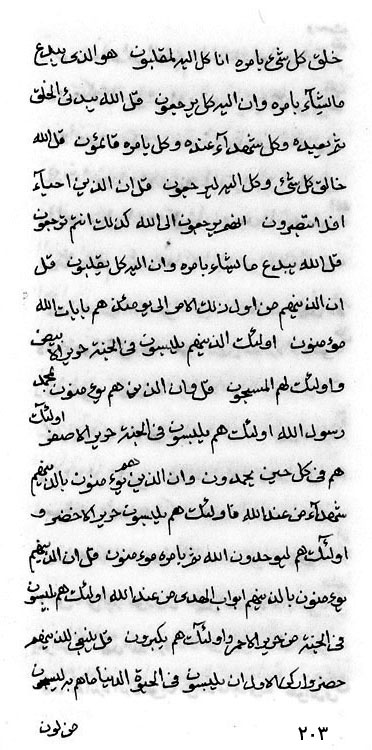 خلق كل شئ بامره انا كل اليه لمقلبون هو الذى يبدع
ما يشآء بامره وان اليه كل يرجعون قل الله يبدئ الخلق
ثم يعيده وكل شهدآء عنده وكل بامره قائمون قل الله
خالق كل شئ وكل اليه ليرجعون قل ان الذين احيآء
افلا تبصرون انهم يرجعون الى الله كذلك انتم ترجعون
قل الله يبدع ما يشاء بامره وان اليه كل يقلبون قل
ان الذينهم من اول ذلك الامر الى يومئذ هم بايات الله
مومنون اولئك الذينهم يلبسون فى الجنة حرير الابيض
واولئك لهم المسبحون قل وان الذين هم يومنون بمحمد
رسول الله اولئك هم يلبسون فى الجنة حرير الاصفر اولئك
هم فى كل حين يحمدون وان الذين هم يومنون بالذينهم
شهدآء من عند الله فاولئك هم يلبسون حرير الاخضر و
اولئك هم ليوحدون الله ثم بامره مومنون قل ان الذينهم
يومنون بالذينهم ابواب الهدى من عند الله اولئك هم يلبسون
فى الجنة من حرير الاحمر واولئك هم يكبرون قل ينبغى للذينهم
الاول ان يلبسون فى الحيوة الدنيا ماهم يلبسون
من لون
٢٠٣